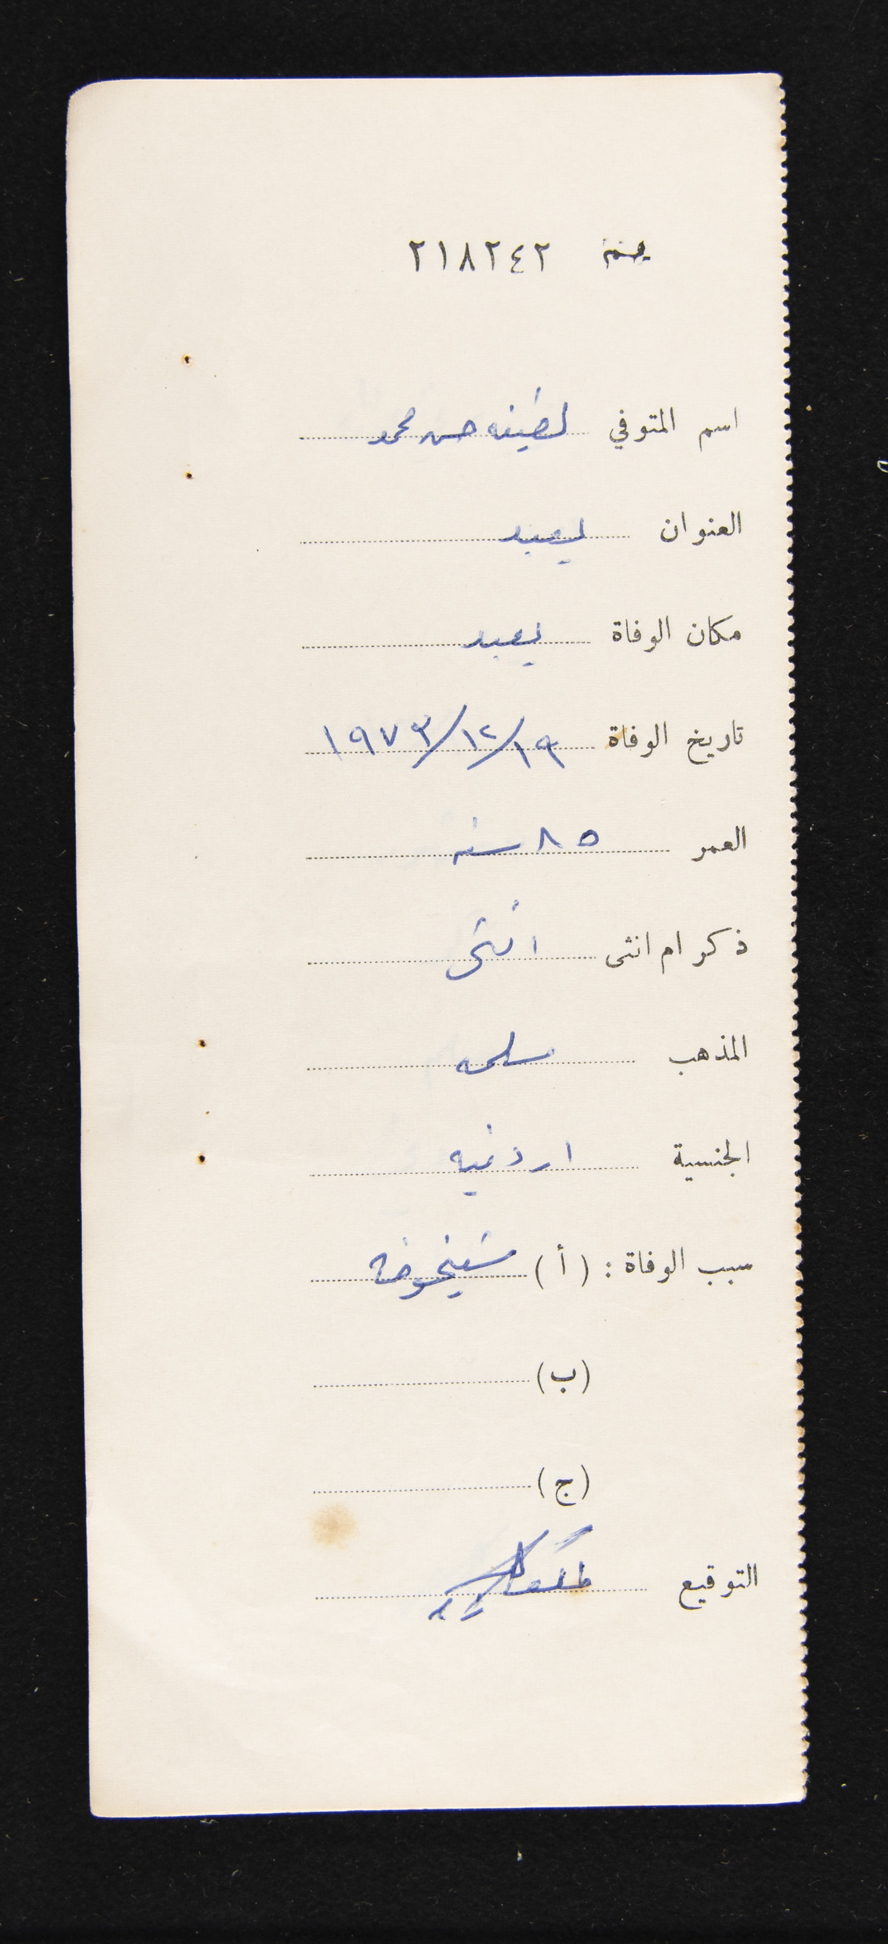 نمرة ٢١٨٢٤٢
اسم المتوفي لطيفه حسن محمد
العنوان يعبد
مكان الوفاة يعبد
تاريخ الوفاة ١٩/١٢/١٩٧٣
العمر ٨٥ سنه
ذكر ام انثى انثى
المذهب مسلمه
الجنسية اردنيه
سبب الوفاة : ( أ ) شيخوخه
(ب)
(ج)
التوقيع